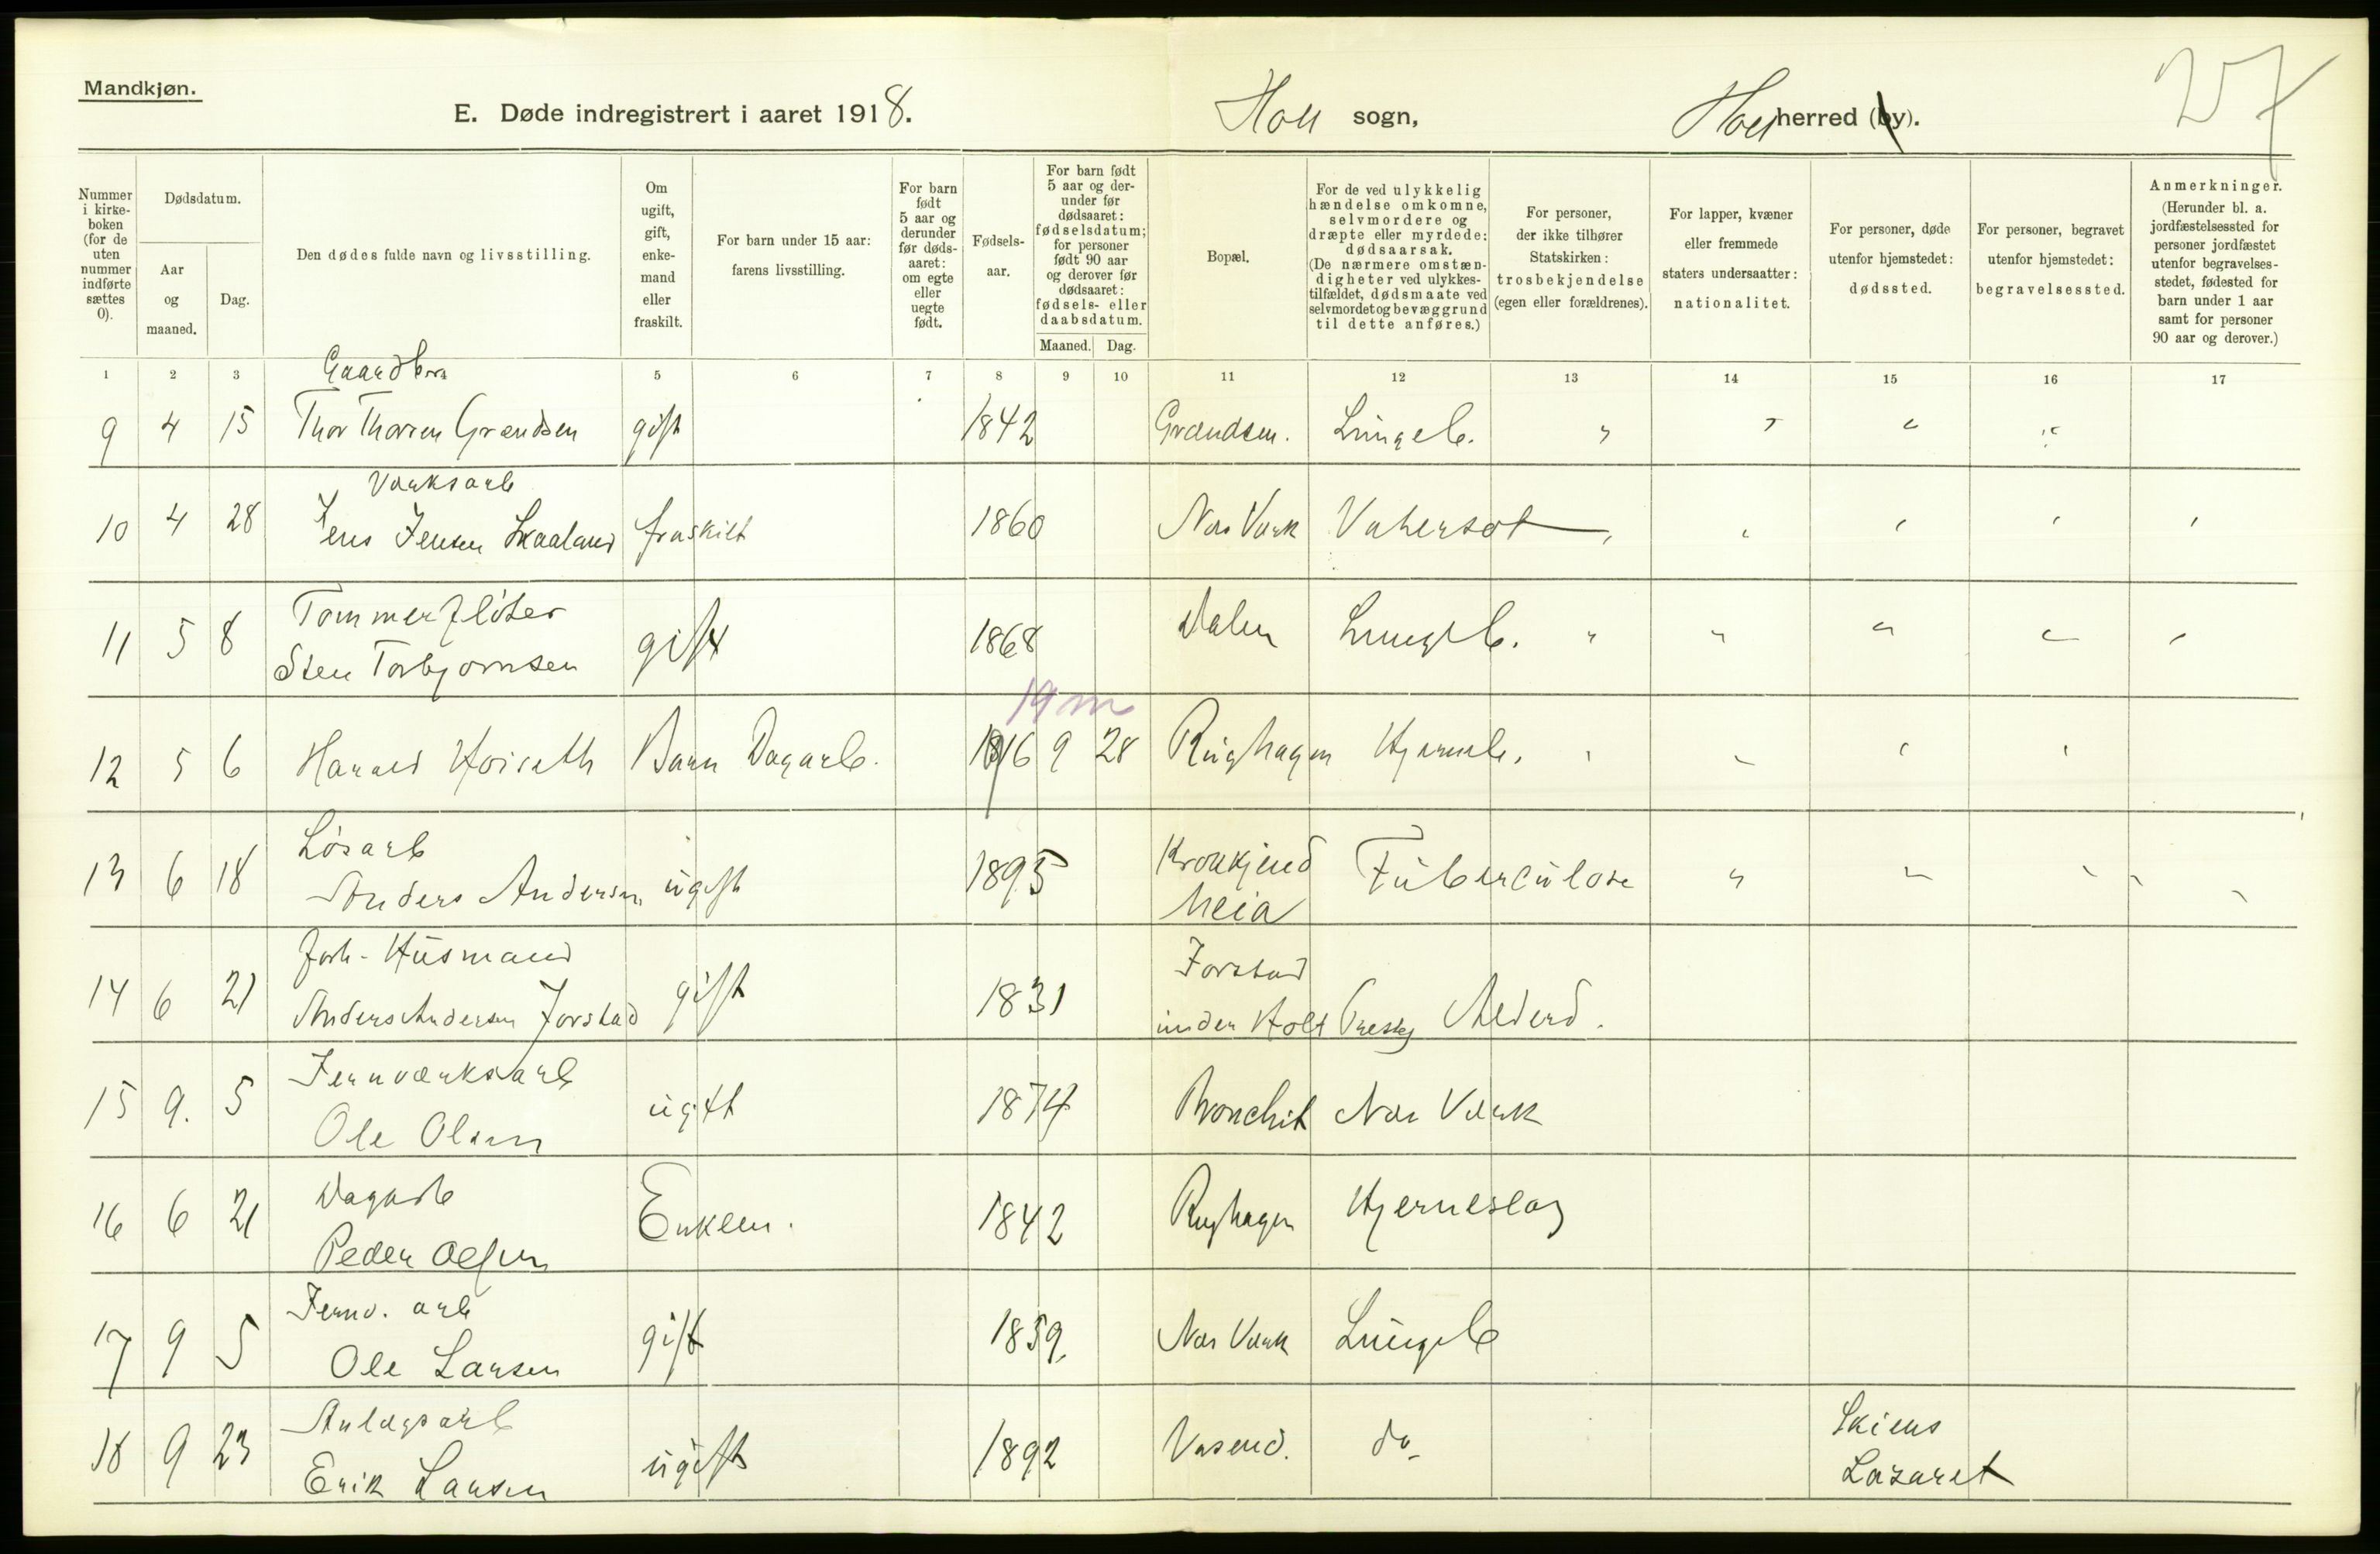 Mandkjøn.
E. Døde indregistrert i aaret 1918. Holt sogn, Holt herred (by).
27
Nummer i kirke-boken (for de uten nummer indførte sættes 0).
Dødsdatum.
Aar og maaned.
Dag.
Den dødes fulde navn og livsstilling.
Om ugift, gift, enke-mand eller fraskilt.
For barn under 15 aar: farens livsstilling.
For barn født 5 aar og derunder før døds-aaret: om egte eller uegte født.
Fødsels-aar.
For barn født 5 aar og der-under før dødsaaret: fødselsdatum; for personer født 90 aar og derover før dødsaaret: fødsels- eller daabsdatum.
Maaned. Dag.
Bopæl.
For de ved ulykkelig hændelse omkomne, selvmordere og dræpte eller myrdede: dødsaarsak. (De nærmere omstæn-digheter ved ulykkes-tilfældet, dødsmaate ved selvmord et og bevæggrund til dette anføres.)
For personer, der ikke tilhører Statskirken: trosbekjendelse (egen eller forældrenes).
For lapper, kvæner eller fremmede staters undersaatter: nationalitet.
For personer, døde utenfor hjemstedet: dødssted.
For personer, begravet utenfor hjemstedet: begravelsessted.
Anmerkninger. (Herunder bl. a. jordfæstelsessted for personer jordfæstet utenfor begravelses-stedet, fødested for barn under 1 aar samt for personer 90 aar og derover.)
1 2 3 5 6 7 8 9 10 11 12 13 14 15 16 17
Gaardbr.
9 4 15 Thor Thorsen Grændsen gift 1842 Grændsen. Lungeb. " " " "
Værksarb
10 4 28 Jens Jensen Skaaland fraskilt 1860 Næs Værk Vatersot " " " " "
Tømmerfløter
11 5 8 Sten Torbjørnsen gift 1868 Dalen Lungeb. " " " " "
19 m
12 5 6 Harald Barn Dagarb. 1916 9 28 Ringhagen Hjerneb. " " " "
Løsarb
13 6 18 Anders Andersen ugift 1895 Krokkjend heia Tuberculose " " " " "
forh. Husmand
14 6 21 Anders Andersen Jorstad gift 1831 Jorstad under Holt Presteg Alderd.
Jernværksarb
15 9. 5 Ole Olsen ugift 1874 Bronchit Næs Værk
Dagarb
16 6 21 Peder Olsen Enkem. 1842 Ringhagen Hjerneslag
Jernv. arb
17 9 5 Ole Larsen gift 1859. Næs Værk Lungeb
Anlægsarb
18 9 23 Erik Larsen ugift 1892 Vasend. do. Skiens
Lazaret